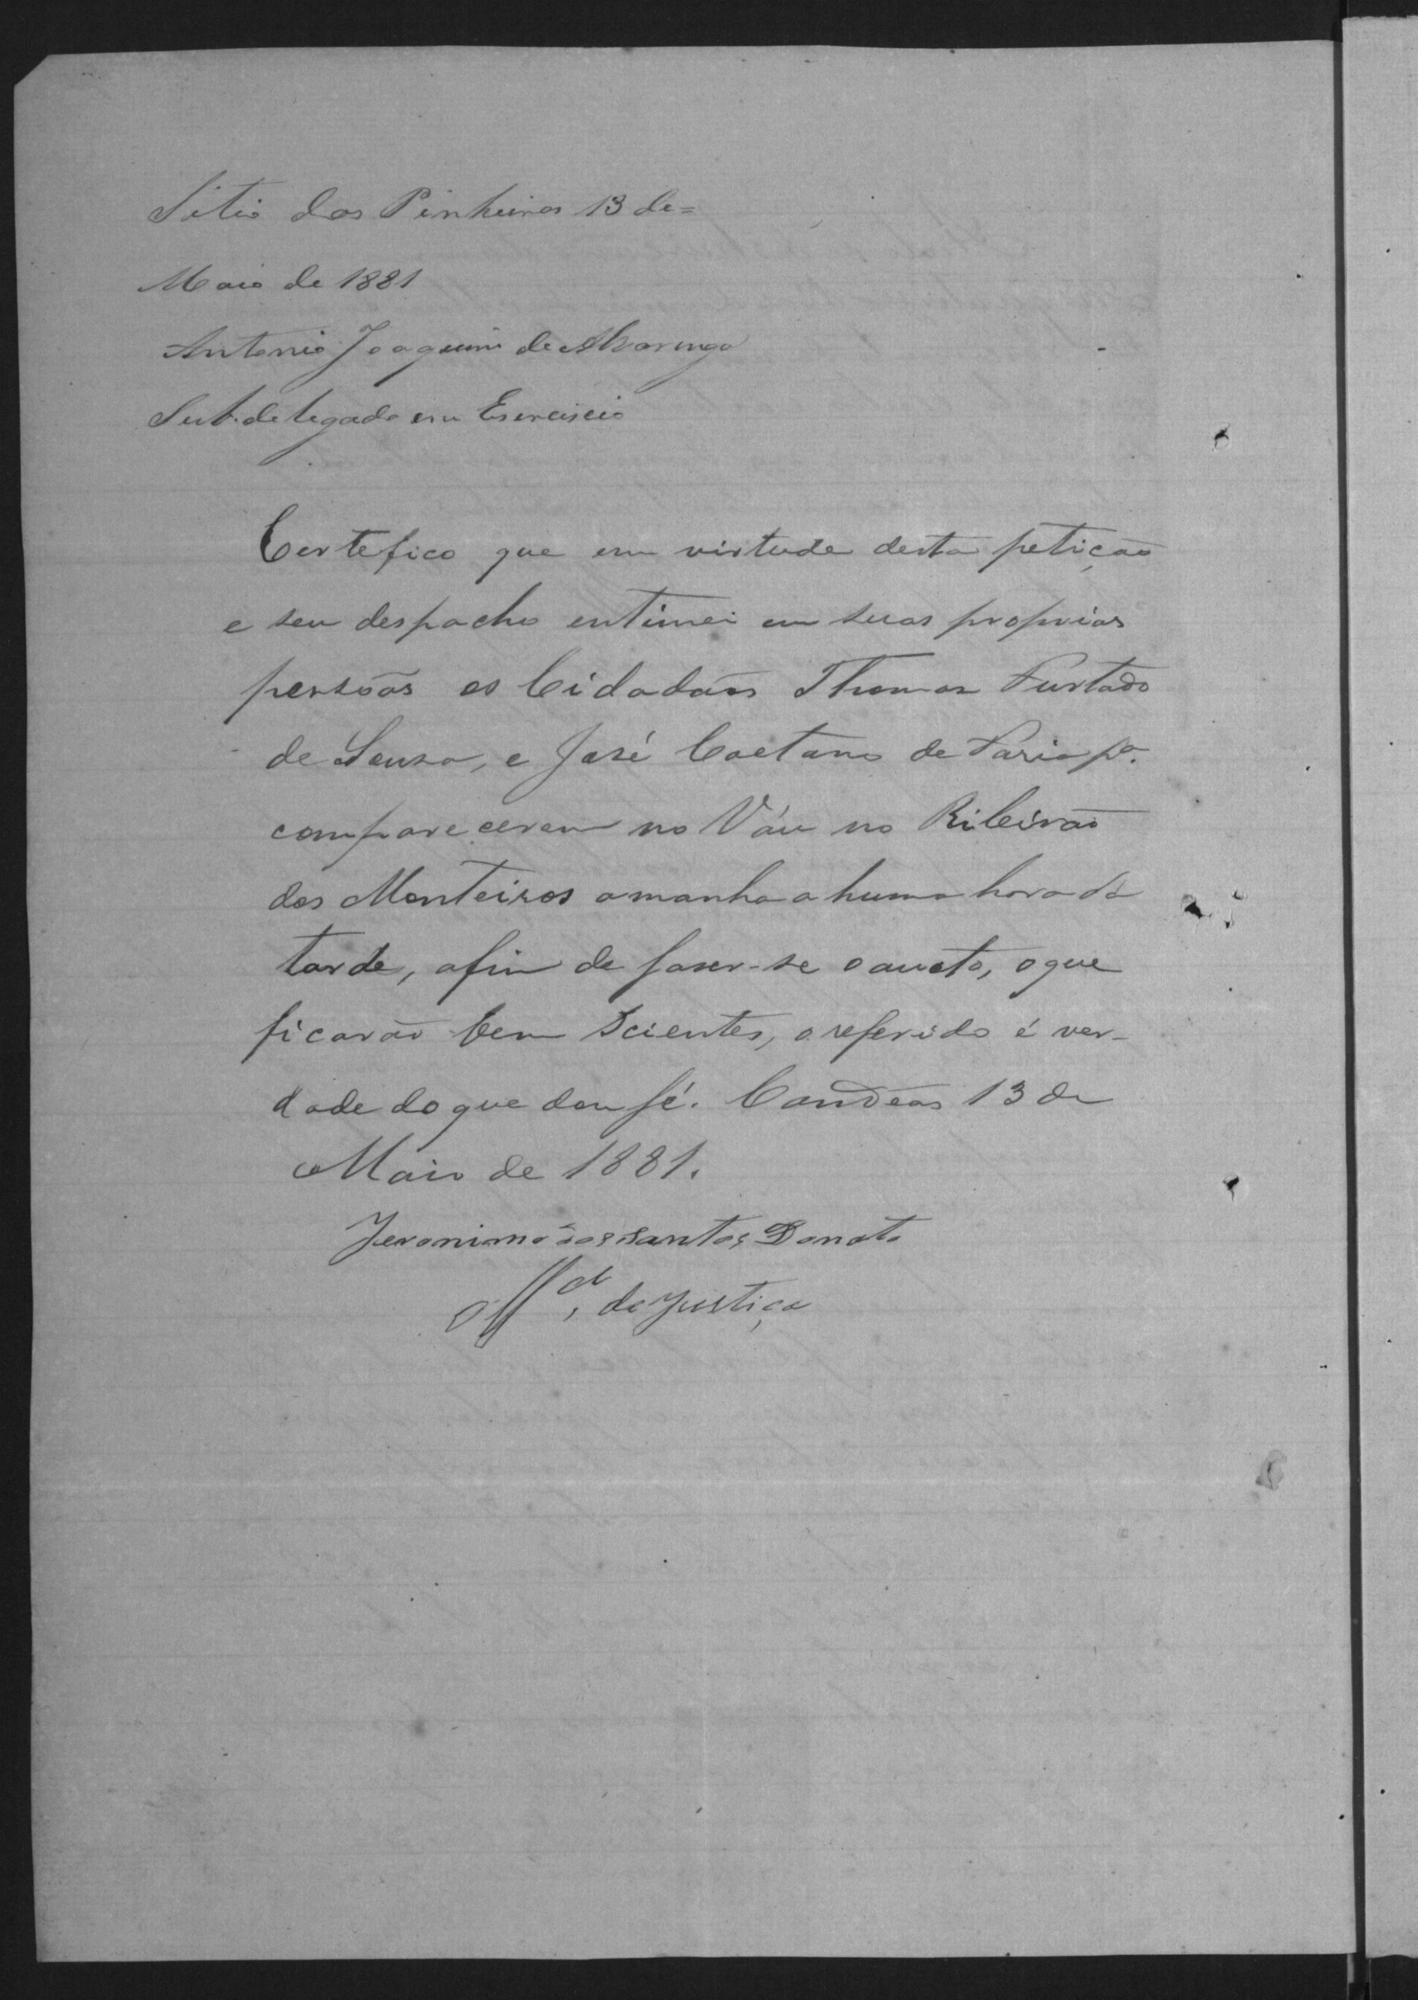 Sitio dos Pinheiros 13 de=
Maio de 1881
Antonio Joaquim de Alvarenga
Subdelegado em Exerciscio
Certefico que em virtude desta petição
e seu despacho entimei em suas proprias
persoãs os Cidadãos Thomas Furtado
de Sousa, e José Caetano de Faria pª.
comparecerem no Váu no Ribeirão
dos Monteiros amanha a huma hora da
tarde, afim de faser-se o aucto, o que
ficarão bem Scientes, o referido é ver-
dade do que dou fé. Candeas 13 de
Maio de 1881.
Jeronimo dos Santos Donato
Offal, de Justiça